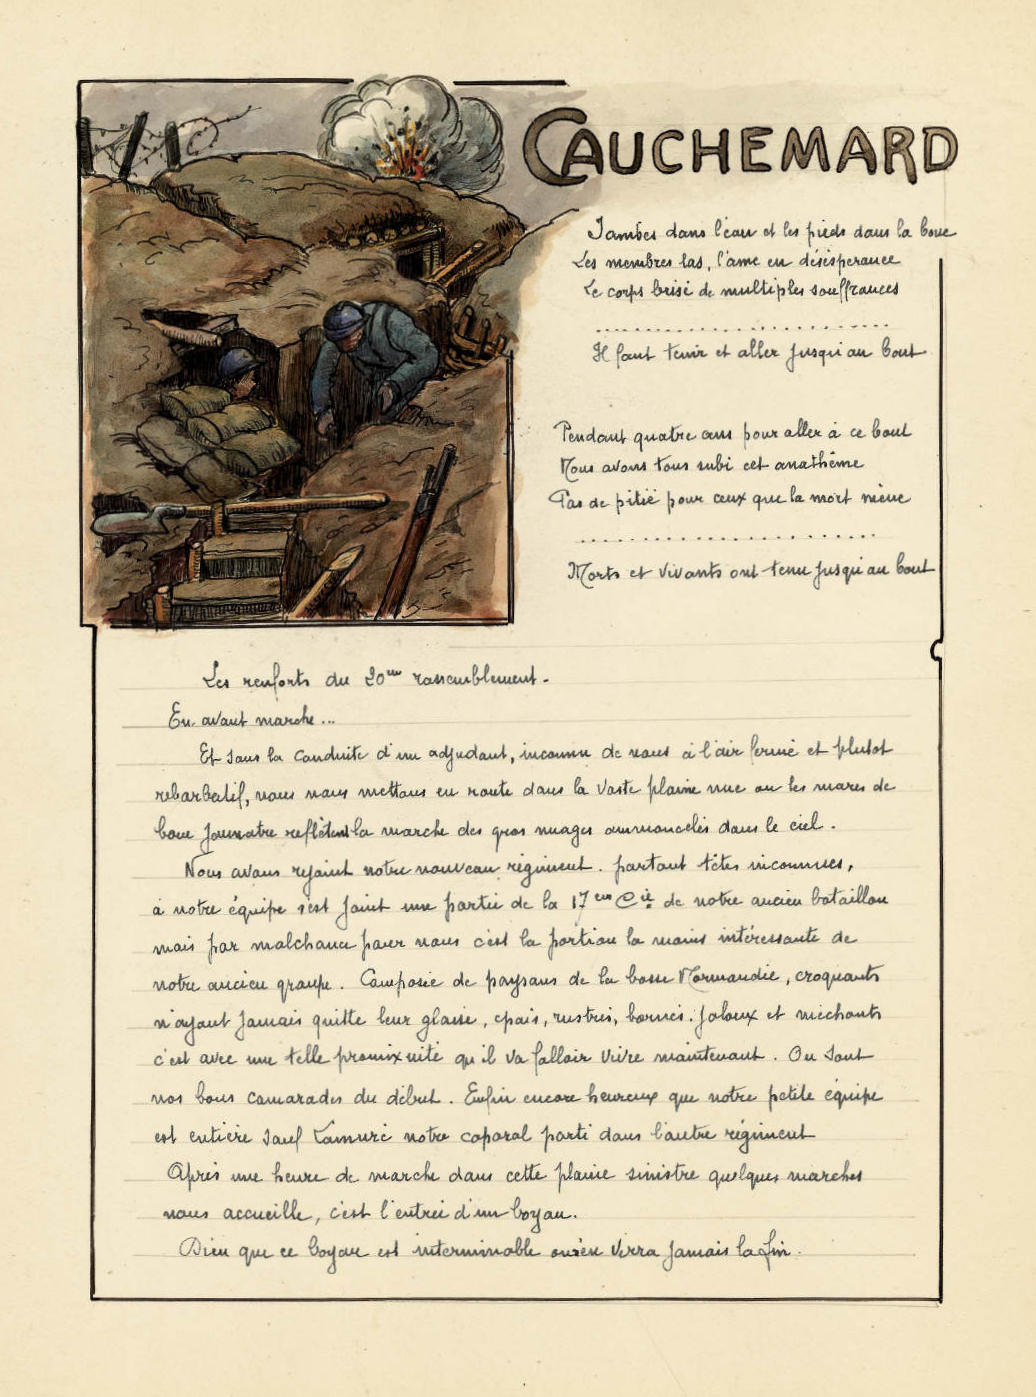 CAUCHEMARD
Jambes dans l'eau et les pieds dans la boue
Les membres las, l'ame en désésperance
Le corps brisé de multiples souffrances
..........................
Il faut tenir et aller jusqu'au bout
Pendant quatre ans pour aller à ce bout
Nous avons tous subi cet anathême
Pas de pitié pour ceux que la mort mène
..........................
Morts et vivants ont tenu jusqu'au bout
Les renforts du 20eme rassemblement.
En avant marche...
Et sous la conduite d'un adjudant, inconnu de nous à l'air fermé et plutot
rebarbatif, nous nous mettons en route dans la vaste plaine nue ou les mares de
boue jaunatre reflètent la marche des gros nuages ammoncelés dans le ciel.
Nous avons rejoint notre nouveau régiment. partout têtes inconnues,
à notre équipe s'est joint une partie de la 17eme Cie de notre ancien bataillon
mais par malchance pour nous c'est la portion la moins intéressante de
notre ancien groupe. Composée de paysans de la basse Normandie, croquants
n'ayant jamais quitté leur glaise, épais, rustres, bornés. Jaloux et méchants
c'est avec une telle promixuité qu'il va falloir vivre maintenant. Ou sont
nos bons camarades du début. Enfin encore heureux que notre petite équipe
est entière sauf notre caporal parti dans l'autre régiment
Après une heure de marche dans cette plaine sinistre quelques marches
nous accueille, c'est l'entrée d'un boyau.
Dieu que ce boyau est interminable verra jamais la fin.